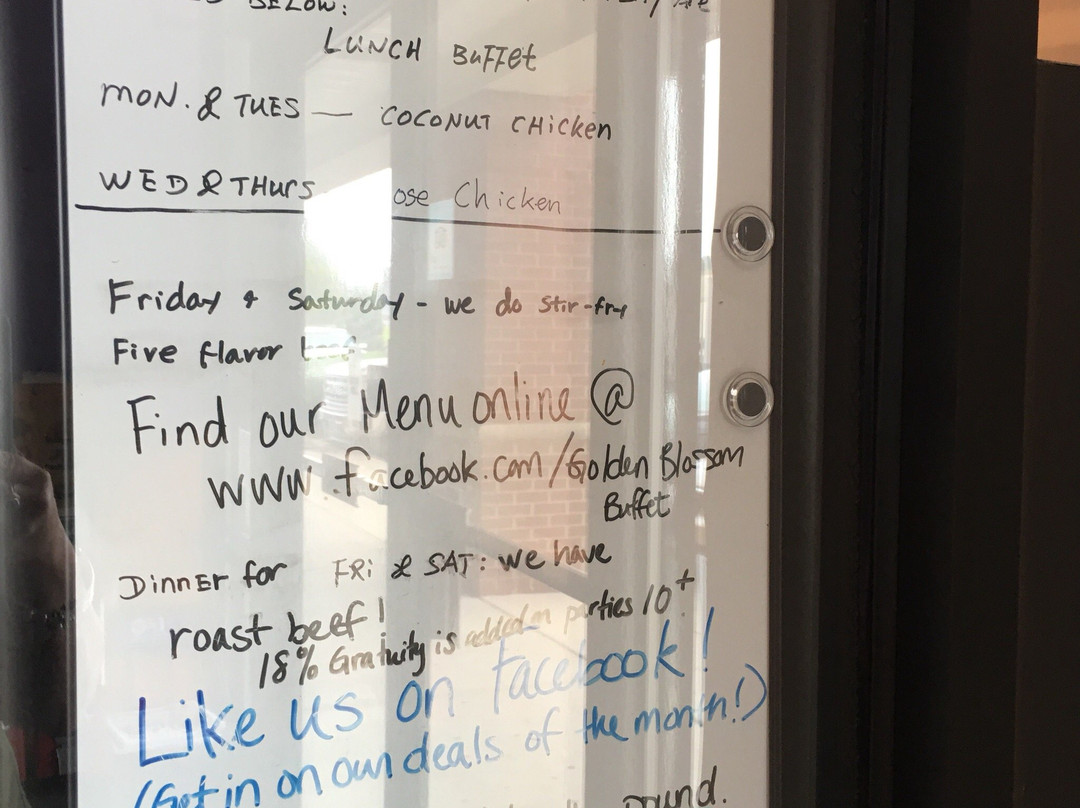 BELOW:
LUNCH BUFFET
MON. & TUES — COCONUT CHICKEN
WED & THURS ose Chicken
Friday & Saturday - we do stir-fry
Five flavor
Find our Menu online @
www.facebook.com/Golden Blossom
Buffet
Dinner for FRi & SAT: we have
roast beef!
18% Gratuity is added on parties 10+
Like us on facebook!
(Get in on our deals of the month!)
ound.